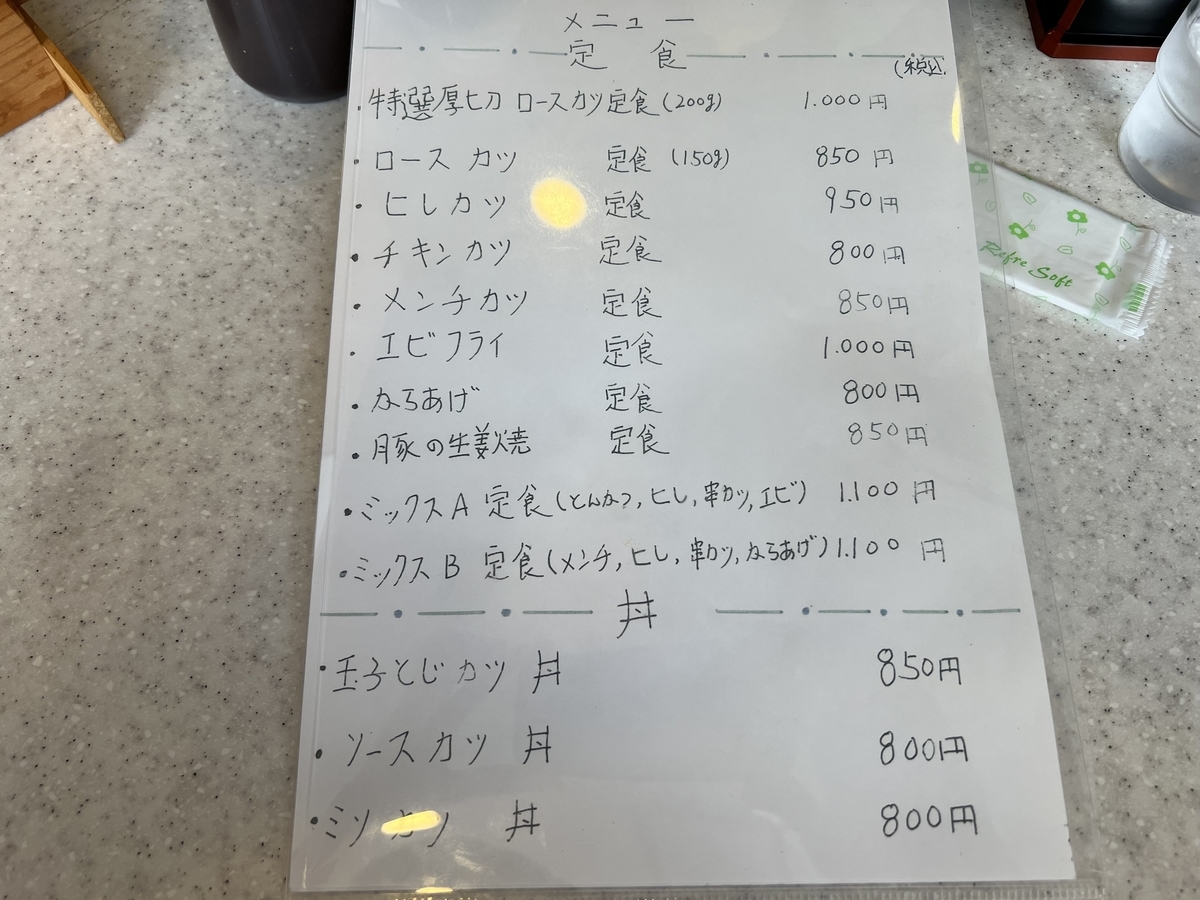 メニュー
定食
(税込
・特選厚切ロースカツ定食(200g) 1.000円
・ロースカツ 定食 (150g) 850円
・ヒレカツ 定食 950円
・チキンカツ 定食 800円
・メンチカツ 定食 850円
・エビフライ 定食 1.000円
・からあげ 定食 800円
・豚の生姜焼 定食 850円
・ミックスA 定食(とんかつ,ヒレ,串カツ,エビ) 1.100円
・ミックスB 定食(メンチ,ヒレ,串カツ,からあげ) 1.100円
丼
・玉子とじカツ丼 850円
・ソースカツ丼 800円
・ミソカツ丼 800円
Refre Soft